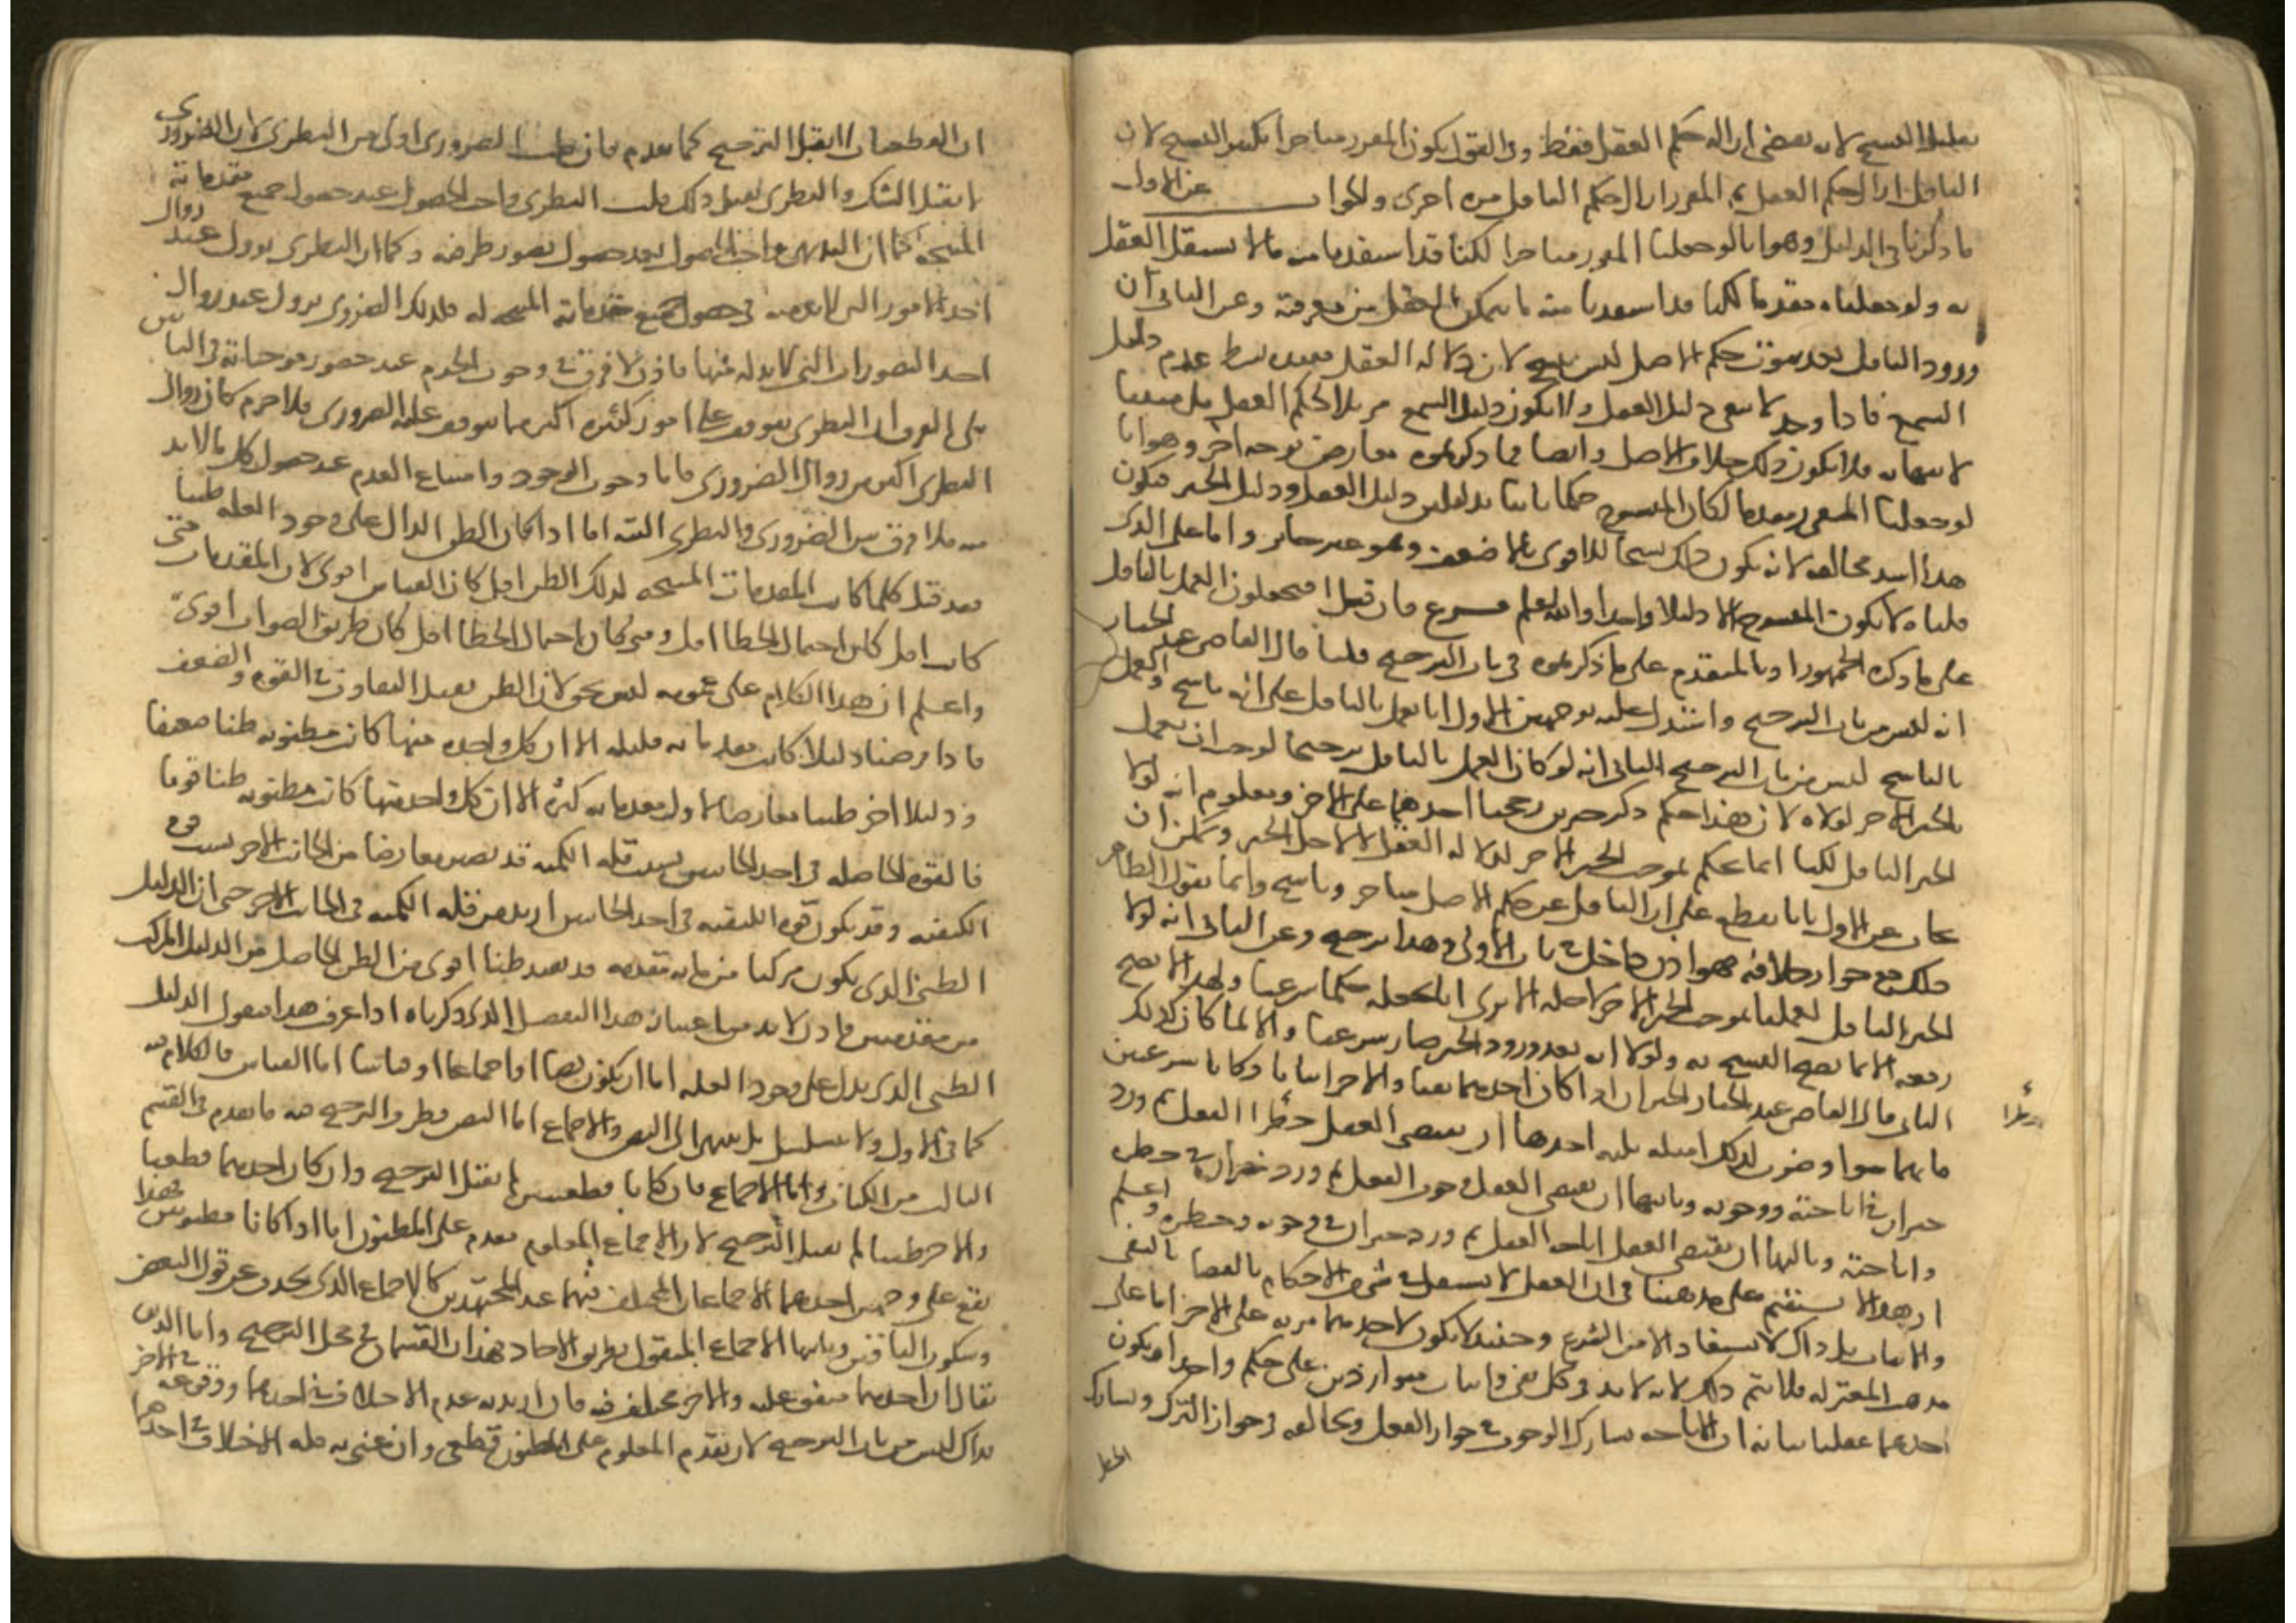 تقليل النسخ لانه يقتضي ازالة حكم العقل فقط وفي القول بكون المقرر متاخرا تكثير النسخ لان
الناقل ازال حكم العقل ثم المقرر ازال حكم الناقل مرة اخرى والجواب عن الاول
ما ذكرنا في الدليل وهو انا لو جعلنا المقرر متاخرا لكنا قد استفدنا منه ما لا يستقل العقل
به ولو جعلناه متقدما لكنا قد استفدنا منه ما يتمكن العقل من معرفته وعن الثاني ان
ورود الناقل بعد ثبوت حكم الاصل ليس بنسخ لان دلالة العقل مقيدة بشرط عدم دليل
السمع فاذا وجد لا يبقى دليل العقل ولا يكون دليل السمع مزيلا لحكم العقل بل مبينا
لانتهائه فلا يكون ذلك خلاف الاصل وايضا فما ذكرتموه معارض بوجه اخر وهو انا
لو جعلنا المقرر متقدما لكان المنسوخ حكما ثابتا بدليلين دليل العقل ودليل الخبر فيكون
هذا اشد مخالفة لانه يكون ذلك نسخا للاقوى بالاضعف وهو غير جائز واما على الذي
قلناه لا يكون المنسوخ الا دليلا واحدا والله اعلم فرع فان قيل افتجعلون العمل بالناقل
على ما ذكره الجمهور او بالمتقدم على ما ذكرتموه في باب الترجيح قلنا قال القاضي عبد الجبار
انه ليس من باب الترجيح واستدل عليه بوجهين الاول انا نعمل بالناقل على انه ناسخ والعمل
بالناسخ ليس من باب الترجيح الثاني انه لو كان العمل بالناقل ترجيحا لوجب ان يعمل
بالخبر الاخر لولاه لان هذا حكم كل خبرين رجحنا احدهما على الاخر ومعلوم انه لولا
الخبر الناقل لكنا انما نحكم بموجب الخبر الاخر لدلالة العقل لا لاجل الخبر ويمكن ان
يجاب عن الاول بانا لا نقطع على ان الناقل عن حكم الاصل متاخر وناسخ وانما نقول الظاهر
ذلك مع جواز خلافه فهو اذن داخل في باب الاولى وهذا ترجيح وعن الثاني انه لولا
الخبر الناقل لعملنا بموجب الخبر الاخر لاجله الا ترى انا نجعله حكما شرعيا ولهذا لا يصح
رفعه الا بما يصح النسخ به ولولا انه بعد ورود الخبر صار شرعيا والا لما كان كذلك
الثاني قال القاضي عبد الجبار الخبران اذا كان احدهما نفيا والاخر اثباتا وكانا شرعيين
فانهما سوا وضرب لذلك امثلة ثلثة احدها ان يقتضي العقل حظر الفعل ثم ورد
خبران في اباحته ووجوبه وثانيها ان يقتضي العقل وجوب الفعل ثم ورد خبران في حظره
واباحته وثالثها ان يقتضي العقل اباحة الفعل ثم ورد خبران في وجوبه وحظره واعلم
ان هذا لا يستقيم على مذهبنا في ان العقل لا يستقل في شي من الاحكام بالقضا بالنفي
والاثبات بل ذاك لا يستفاد الا من الشرع وحينئذ لا يكون لاحدهما مزية على الاخر اما على
مذهب المعتزلة فلا يتم ذلك لانه لا بد في كل نفي واثبات متواردين على حكم واحد ان يكون
احدهما عقليا بيانه ان الاباحة تشارك الوجوب في جواز الفعل وتخالفه في جواز الترك وتشارك
الحظر
ان القطعيات لا تقبل الترجيح كما تقدم فان قلت الضروري اولى من النظري لان الضروري
لا يقبل الشك والنظري يقبل ذلك قلت النظري واجب الحصول عند حصول جميع مقدماته
المنتجة كما ان البديهي واجب الحصول بعد حصول تصور طرفيه وكما ان النظري يزول عند زوال
احد الامور التي لا بد منها في حصول جميع مقدماته المنتجة له فكذلك الضروري يزول عند زوال
احد التصورات التي لا بد له منها فاذن لا فرق في وجوب الجزم عند حصور موجباته في البابين
بلى الفرق ان النظري يتوقف على امور كثيرة اكثر مما يتوقف عليه الضروري فلا جرم كان زوال
النظري اكثر من زوال الضروري فاما وجوب الوجود وامتناع العدم عند حصول كل ما لا بد
منه فلا فرق بين الضروري والنظري البتة اما اذا كان الطريق الدال على وجود العلة ظنيا
فقد قيل كلما كانت المقدمات المنتجة لذلك الظن اقل كان القياس اقوى لان المقدمات متى
كانت اقل كان احتمال الخطا اقل ومتى كان احتمال الخطا اقل كان طريق الصواب اقوى
واعلم ان هذا الكلام على عمومه ليس بحق لان الظن يقبل التفاوت في القوة والضعف
فاذا فرضنا دليلا كانت مقدماته قليلة الا ان كل واحدة منها كانت مظنونة ظنا ضعيفا
ودليلا اخر ظنيا معارضا للاول مقدماته كثيرة الا ان كل واحدة منها كانت مظنونة ظنا قويا
فالقوة الحاصلة في احد الجانبين بسبب قلة الكمية قد تصير معارضا من الجانب الاخر بسبب قوة
الكيفية وقد يكون قوة الكيفية في احد الجانبين ازيد من قلة الكمية في الجانب الاخر حتى ان الدليل
الظني الذي يكون مركبا من مائة مقدمة قد يفيد ظنا اقوى من الظن الحاصل من الدليل المركب
من مقدمتين فاذن لا بد من اعتبار هذا التفصيل الذي ذكرناه اذا عرفت هذا فنقول الدليل
الظني الذي يدل على وجود العلة اما ان يكون نصا او اجماعا او قياسا اما القياس فالكلام فيه
كما في الاول ولا يتسلسل بل ينتهي الى النص والاجماع اما النص فطرق الترجيح فيه ما تقدم في القسم
الثالث من الكتاب واما الاجماع فان كانا قطعيين لم يقبل الترجيح وان كان احدهما قطعيا
والاخر ظنيا لم يقبل الترجيح لان الاجماع المعلوم مقدم على المظنون اما اذا كانا مظنونين فهذا
يقع على وجهين احدهما الاجماعات المختلف فيها عند المجتهدين كالاجماع الذي يحدث عن قول البعض
وسكوت الباقين وثانيها الاجماع المنقول بطريق الاحاد فهذان القسمان في محل الترجيح واما الذي
يقال ان احدهما متفق عليه والاخر مختلف فيه فان اريد به عدم الاختلاف في احدهما ووقوعه في الاخر
فذاك ليس من باب الترجيح لان تقدم المعلوم على المظنون قطعي وان عني به قلة الاختلاف في احدهما